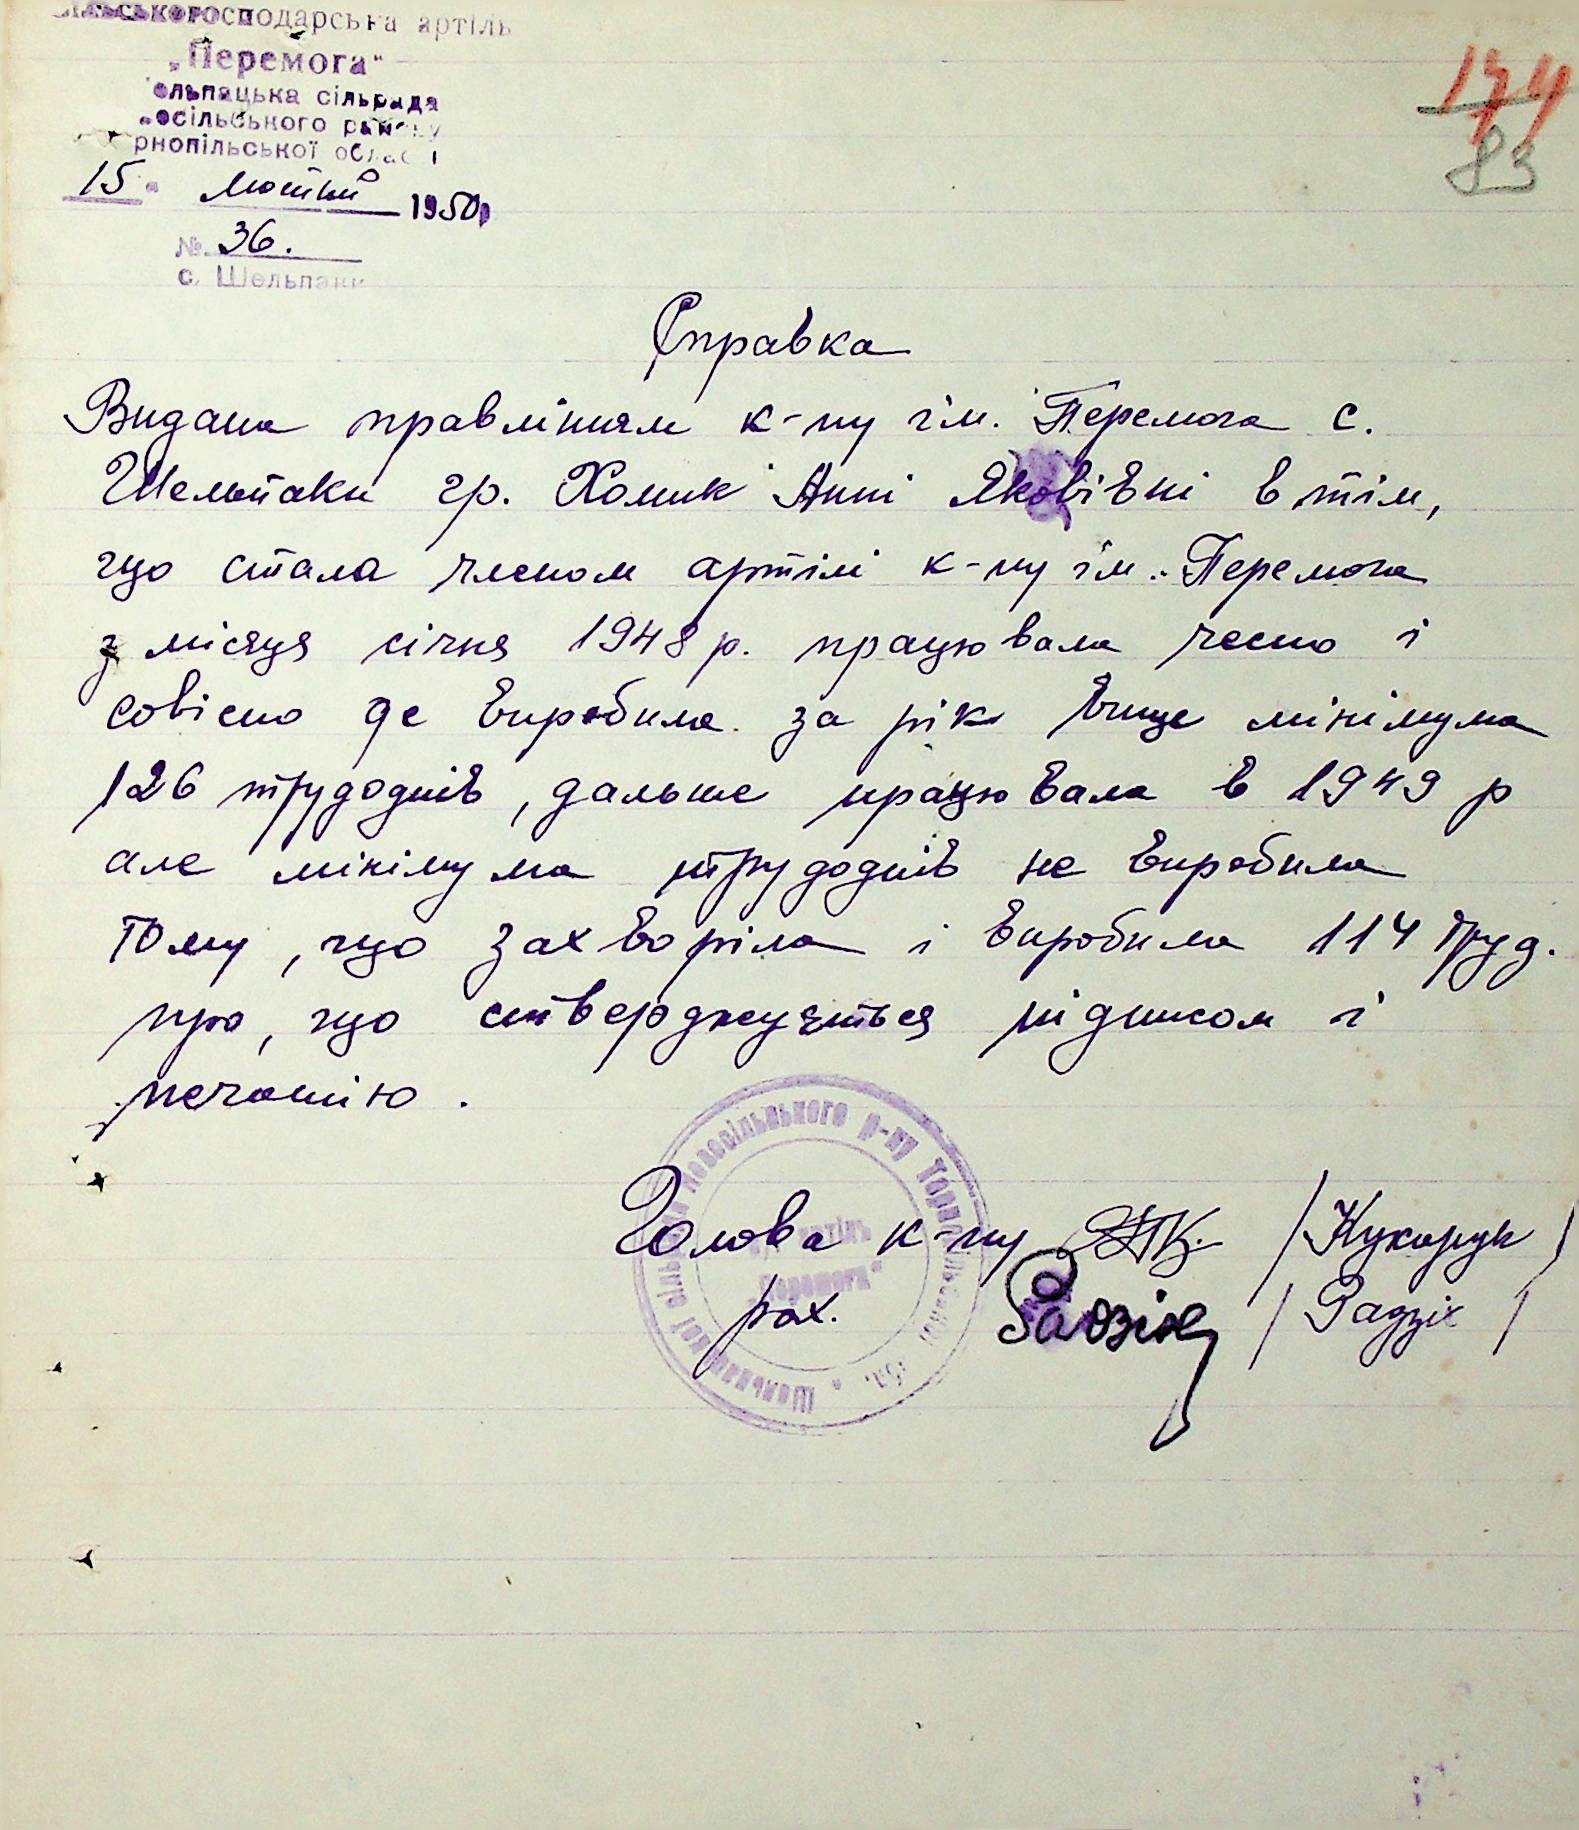 сільськогосподарська артіль
„Перемога"
ельпацька сільрада
осільського району
рнопільської області
15 " лютий 1950р
№ 36.
с. Шельпаки
174
83
Справка
Видана правлінням к-пу ім. Перемога с.
Шельпаки гр. Хомик Анні Яковівні в тім,
що стала членом артілі к-пу ім. Перемога
з місяця січня 1948 р. працювала чесно і
совісно де виробила за рік вище мінімума
126 трудоднів, дальше працювала в 1949 р
але мінімума трудоднів не виробила
тому, що захворіла і виробила 114 труд.
про, що стверджується підписом і
печатію.
Голова к-пу /Кукурук/
рах. Радзіх /Радзіх/
Шельпацької сільради Новосільського р-ну Тернопільської обл.
артіль
„Перемога"